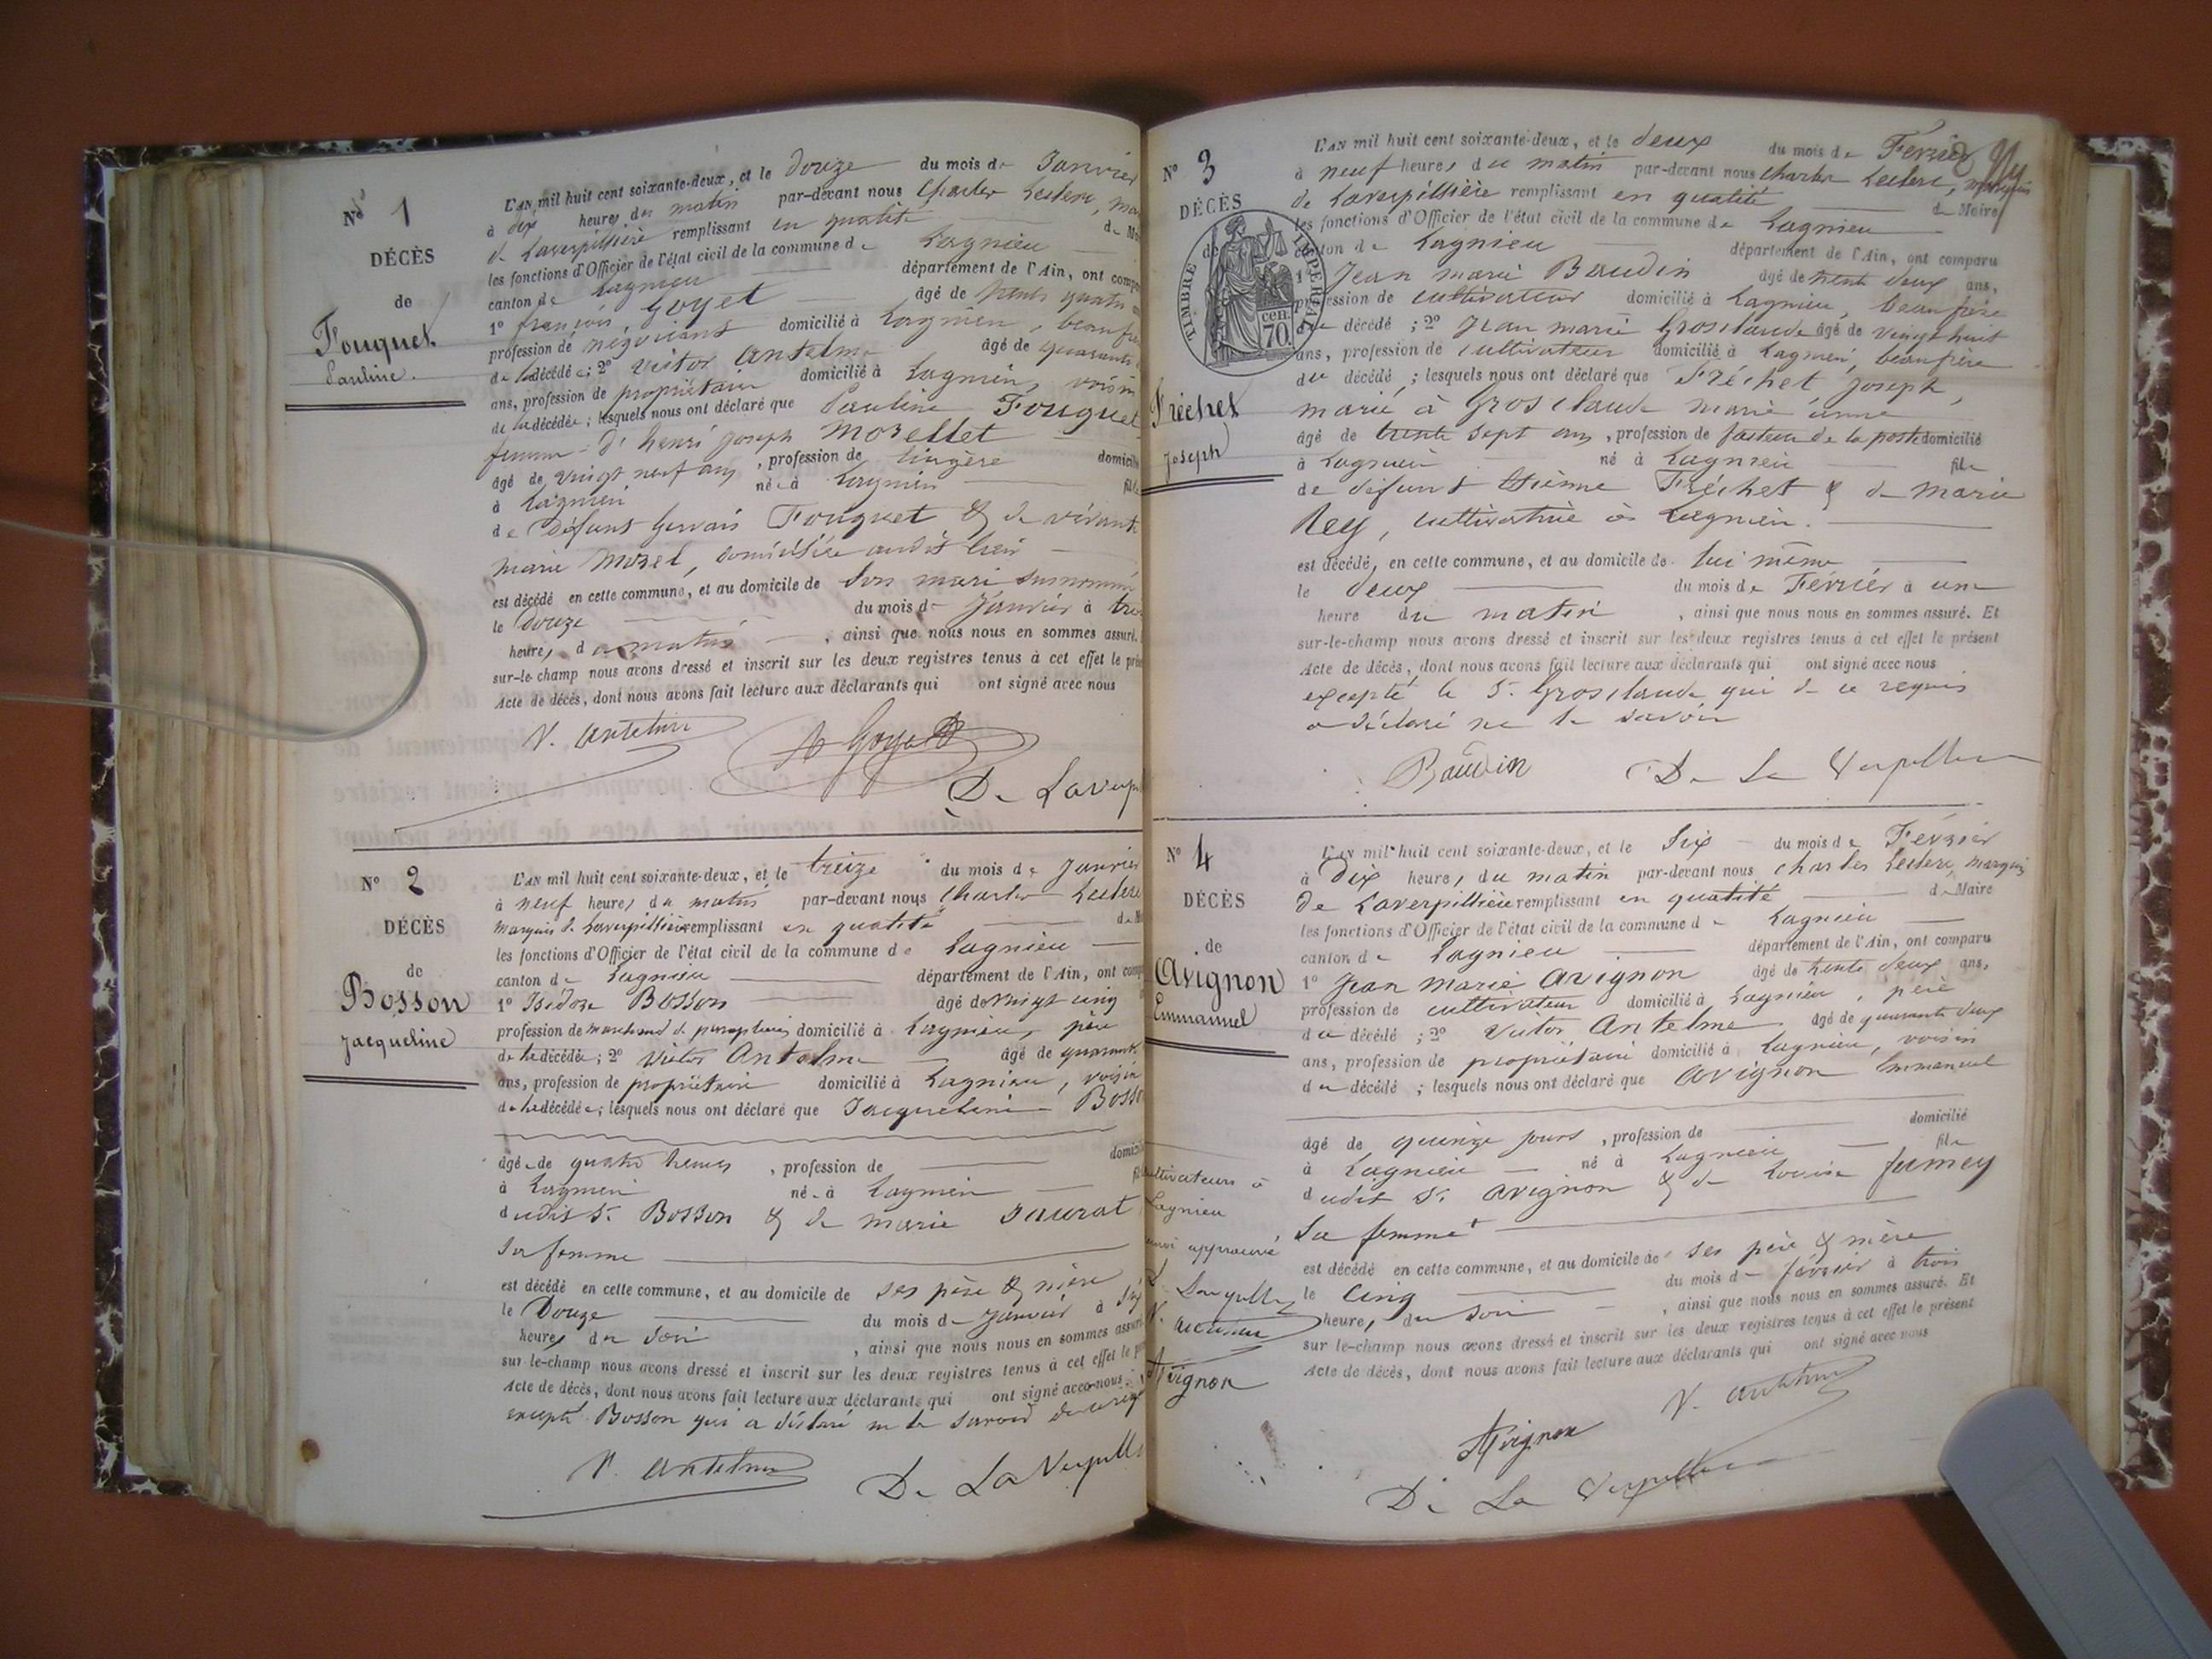 Nº 1
DÉCÈS
de
Fouquet
Pauline.
L'AN mil huit cent soixante-deux, et le douze du mois de Janvier
à dix heures du matin par-devant nous Charles Leclerc, mar
de Laverpillière remplissant en qualité de M
les fonctions d'Officier de l'état civil de la commune de Lagnieu
canton de Lagnieu département de l'Ain, ont comp
1º françois Goyet âgé de trente quatre
profession de négociant domicilié à Lagnieu, beaufr
de la décédée; 2º Victor Antelme âgé de quarante
ans, profession de propriétaire domicilié à Lagnieu, voisin
de la décédée; lesquels nous ont déclaré que Pauline Fouquet
femme d'henri joseph Morellet
âgé de vingt neuf ans, profession de lingère domicilié
à Lagnieu née à Lagnieu fille
de défunt Gervais Fouquet & de vivante
marie Morel, domiciliée audit lieu
est décédé en cette commune, et au domicile de son mari susnommé
le douze du mois de Janvier à
heures du matin, ainsi que nous nous en sommes assuré.
sur-le-champ nous avons dressé et inscrit sur les deux registres tenus à cet effet le prés
Acte de décès, dont nous avons fait lecture aux déclarants qui ont signé avec nous
V. Antelme Goyet
De Laverp
Nº 2
DÉCÈS
de
Bosson
Jacqueline
L'AN mil huit cent soixante-deux, et le treize du mois de Janvier
à neuf heures du matin par-devant nous Charles Leclerc
marquis de Laverpillière remplissant en qualité de M
les fonctions d'Officier de l'état civil de la commune de Lagnieu
canton de Lagnieu département de l'Ain, ont comp
1º Isidore Bosson âgé de vingt cinq
profession de marchand de parapluies domicilié à Lagnieu, père
de la décédée; 2º Victor Antelme âgé de quarante
ans, profession de propriétaire domicilié à Lagnieu, voisin
de la décédée; lesquels nous ont déclaré que Jacqueline Boss
âgée de quatre heures, profession de domici
à Lagnieu née à Lagnieu
dudit Sr. Bosson & de marie Saurat
sa femme
est décédé en cette commune, et au domicile de ses père & mère
le Douze du mois de Janvier à
heures du soir, ainsi que nous nous en sommes assuré
sur-le-champ nous avons dressé et inscrit sur les deux registres tenus à cet effet le p
Acte de décès, dont nous avons fait lecture aux déclarants qui ont signé avec nous
excepté Bosson qui a déclaré ne le savoir de ce requi
V. Antelme De La Verpill
Nº 3
DÉCÈS
de
TIMBRE IMPÉRIAL
70 cen.
Fréchet
Joseph
L'AN mil huit cent soixante-deux, et le deux du mois de Février
à neuf heures du matin par-devant nous Charles Leclerc, marquis
de Laverpillière remplissant en qualité de Maire
les fonctions d'Officier de l'état civil de la commune de Lagnieu
canton de Lagnieu département de l'Ain, ont comparu
1º Jean marie Baudin âgé de trente deux ans,
profession de cultivateur domicilié à Lagnieu, beaufrère
du décédé; 2º Jean marie Grosclaude âgé de vingt huit
ans, profession de cultivateur domicilié à Lagnieu, beaufrère
du décédé; lesquels nous ont déclaré que Fréchet Joseph,
marié à Grosclaude marie anne
âgé de trente sept ans, profession de facteur de la poste domicilié
à Lagnieu né à Lagnieu fils
de défunt Etienne Fréchet & de marie
Rey, cultivatrice à Lagnieu.
est décédé, en cette commune, et au domicile de lui même
le deux du mois de Février à une
heure du matin, ainsi que nous nous en sommes assuré. Et
sur-le-champ nous avons dressé et inscrit sur les deux registres tenus à cet effet le présent
Acte de décès, dont nous avons fait lecture aux déclarants qui ont signé avec nous
excepté le Sr. Grosclaude qui de ce requis
a déclaré ne le savoir
Baudin De La Verpilliere
Nº 4
DÉCÈS
de
Avignon
Emmanuel
L'AN mil huit cent soixante-deux, et le Six du mois de Février
à Dix heures du matin par-devant nous charles Leclerc, marquis
de Laverpillière remplissant en qualité de Maire
les fonctions d'Officier de l'état civil de la commune de Lagnieu
canton de Lagnieu département de l'Ain, ont comparu
1º Jean Marie Avignon âgé de trente deux ans,
profession de cultivateur domicilié à Lagnieu, père
du décédé; 2º Victor Antelme âgé de quarante deux
ans, profession de propriétaire domicilié à Lagnieu, voisin
du décédé; lesquels nous ont déclaré que Avignon Emmanuel
âgé de quinze jours, profession de domicilié
à Lagnieu né à Lagnieu fils
dudit Sr. Avignon & de Louise Jumey
sa femme
est décédé en cette commune, et au domicile de ses père & mère
le Cinq du mois de février à trois
heures du soir, ainsi que nous nous en sommes assuré. Et
sur-le-champ nous avons dressé et inscrit sur les deux registres tenus à cet effet le présent
Acte de décès, dont nous avons fait lecture aux déclarants qui ont signé avec nous
V. Antelme
Avignon
De La Verpilliere
cultivateurs à
Lagnieu
approuvé
Avignon